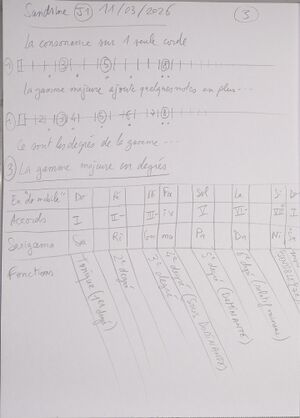 Sandrine J1 11/03/2026 3
La consonance sur 1 seule corde
1) 1 3 5 8
La gamme majeure ajoute quelques notes en plus...
1 2 3 4 5 6 7 8
Ce sont les degrés de la gamme...
3) La gamme majeure en degrés
En "do mobile" Do Ré Mi Fa Sol La Si Do
Accords I II- III- IV V VI- VII I
Sargams Sa Ri Ga ma Pa Da Ni Sa
Fonctions
Tonique (1er degré)
2e degré
3e degré
4e degré (SOUS DOMINANTE)
5e degré (DOMINANTE)
6e degré